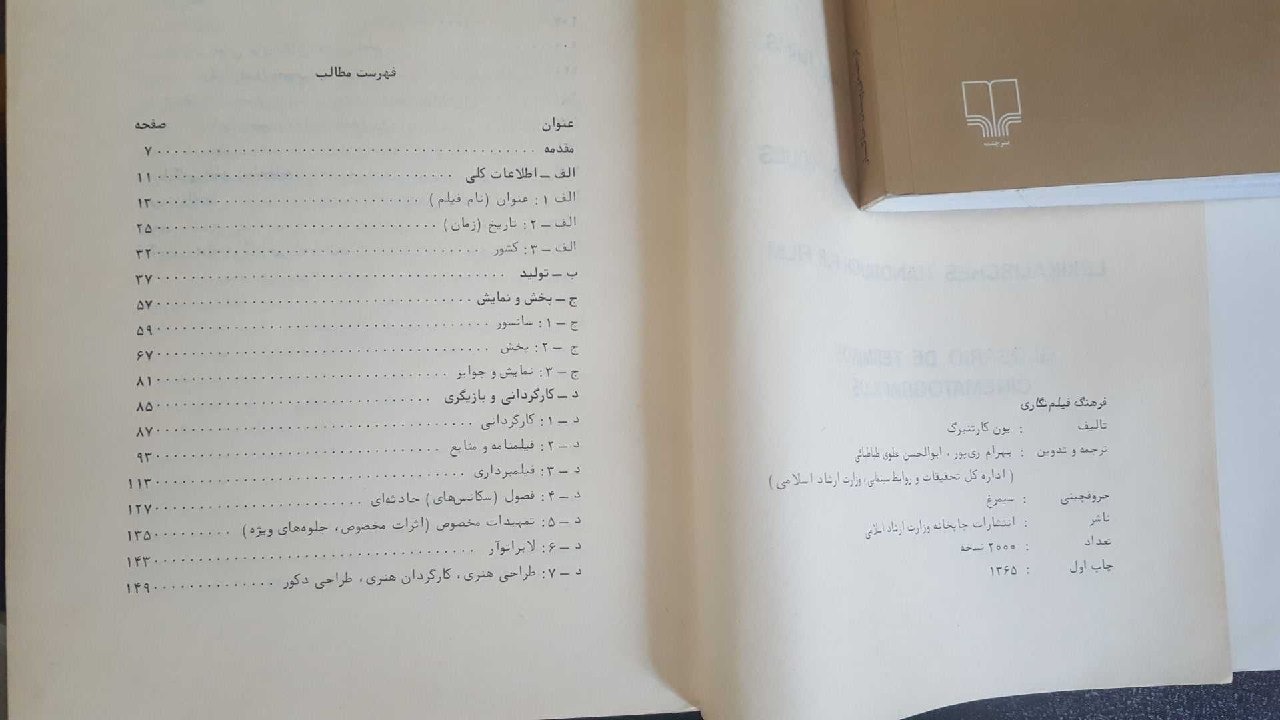 فرهنگ فیلم‌نگاری
تالیف : یون کارتنبرگ
ترجمه و تدوین : بهرام ری‌پور ، ابوالحسن علوی طباطبائی
( اداره کل تحقیقات و روابط سینمایی، وزارت ارشاد اسلامی )
حروفچینی : سیمرغ
ناشر : انتشارات چاپخانه وزارت ارشاد اسلامی
تعداد : ۲۰۰۰ نسخه
چاپ اول : ۱۳۶۵
فهرست مطالب
عنوان صفحه
مقدمه ۷
الف ــ اطلاعات کلی ۱۱
الف ۱: عنوان (نام فیلم) ۱۳
الف ــ ۲: تاریخ (زمان) ۲۵
الف ــ ۳: کشور ۳۲
ب ــ تولید ۳۷
ج ــ پخش و نمایش ۵۷
ج ــ ۱: سانسور ۵۹
ج ــ ۲: پخش ۶۷
ج ــ ۳: نمایش و جوایز ۸۱
د ــ کارگردانی و بازیگری ۸۵
د ــ ۱: کارگردانی ۸۷
د ــ ۲: فیلمنامه و منابع ۹۳
د ــ ۳: فیلمبرداری ۱۱۳
د ــ ۴: فصول (سکانس‌های) حادثه‌ای ۱۲۷
د ــ ۵: تمهیدات مخصوص (اثرات مخصوص، جلوه‌های ویژه) ۱۳۵
د ــ ۶: لابراتوآر ۱۴۳
د ــ ۷: طراحی هنری، کارگردان هنری، طراحی دکور ۱۴۹